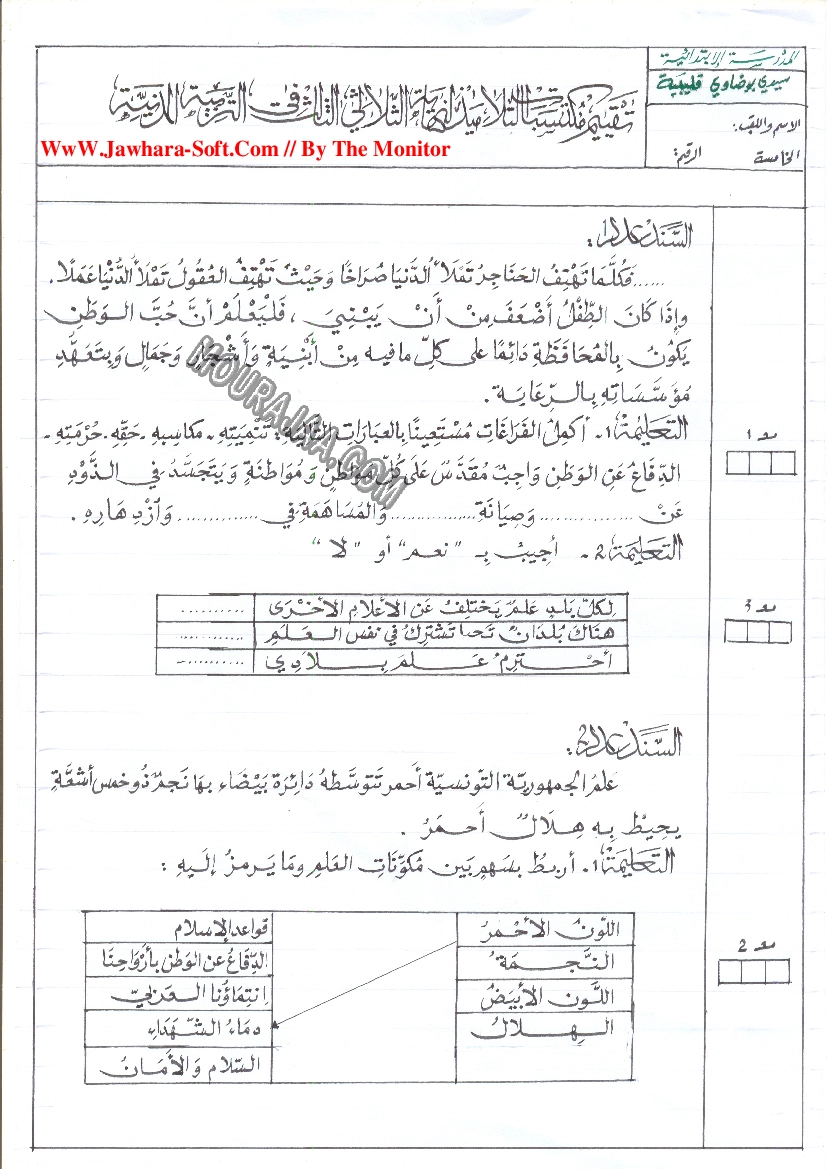 المدرسة الابتدائية
سيدي بوضاوي قليبية
تقييم مكتسبات التلاميذ لنهاية الثلاثي الثالث في التربية المدنية
الاسم واللقب:
الخامسة الرقم:
WwW.Jawhara-Soft.Com // By The Monitor
السند عدد1:
......فكلّما تهتِفُ الحناجرُ تملأُ الدّنيا صراخًا وحيثُ تهتِفُ العقولُ تملأُ الدُّنيا عملًا.
وإذا كانَ الطِّفلُ أضْعَفَ مِنْ أنْ يَبْنِيَ، فَلْيَعْلَمْ أنَّ حُبَّ الوَطَنِ
يكونُ بالمُحافَظَةِ دائمًا على كلِّ ما فيه مِنْ أبْنِيَةٍ وأشْجارٍ وجَمالٍ وبتعَهُّدِ
مُؤسَّساتِهِ بالرِّعايَة.
التّعليمة1- أكملُ الفَراغَاتِ مُستَعِينًا بالعباراتِ التّاليةِ: تنْمِيَتِهِ - مكاسبِهِ - حَقِّهِ - حُرْمَتِهِ -
الدِّفاعُ عَنِ الوَطَنِ واجِبٌ مُقَدَّسٌ عَلَى كُلِّ مُواطِنٍ ومُواطنَةٍ ويَتَجَسَّدُ في الذَّوْدِ
عَنْ ................ وصِيانَةِ ................ والمُسَاهَمَةِ في .............. وازْدِهارِهِ.
التّعليمة2- أجيبُ بـ "نعم" أو "لا"
لكلِّ بَلدٍ عَلَمٌ يَختلِفُ عَنِ الأعْلامِ الأخْرَى ..........
هناكَ بُلدَانٌ تَشْتَرِكُ في نفسِ العَلَمِ ..........
أحْترِمُ عَلَمَ بِلادِي ..........
السند عدد2:
علمُ الجمهوريّة التّونسيّة أحمر تتوسّطه دائرة بيْضاء بها نَجمٌ ذو خمس أشعَّةٍ
يحيطُ بِه هِلالٌ أحمَرُ.
التّعليمة1- أربطُ بسهمٍ بَين مُكوِّناتِ العَلمِ ومَا يَرمزُ إليهِ:
اللّونُ الأحْمَرُ
النَّجمَةُ
اللَّونُ الأبْيَضُ
الهِلالُ
قواعد الإسلام
الدِّفاعُ عن الوَطن بأرْوَاحِنَا
انتِماؤُنا العَرَبِيّ
دماءُ الشُّهَدَاءِ
السّلام والأمَانُ
مع1
مع3
مع2
MOURAJAA.COM